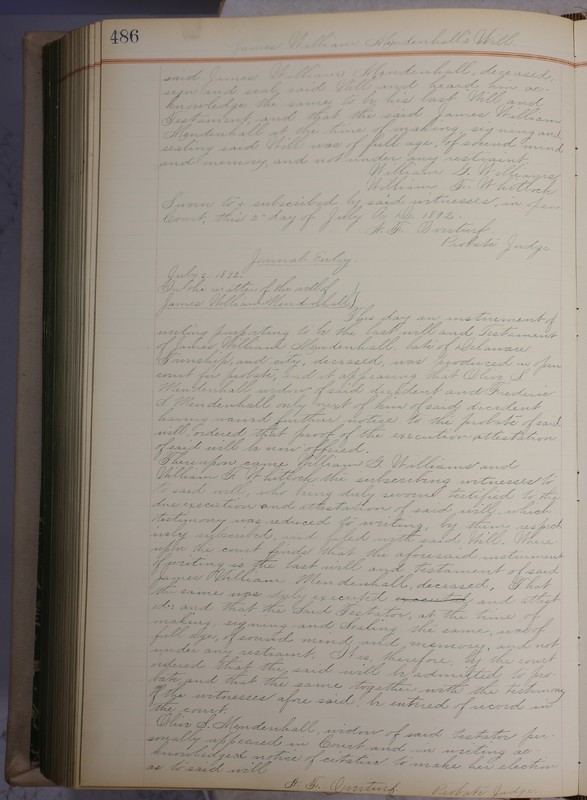 486
James William Mendenhall's Will
said James William Mendenhall, deceased,
sign and seal said Will and heard him ac-
knowledge the same to be his last Will and
Testament, and that the said James William
Mendenhall at the time of making, signing and
sealing said Will was of full age, of sound mind
and memory, and not under any restraint.
William G. Williams
William F. Whitlock
Sworn to & subscribed by said witnesses, in open
Court, this 2nd day of July A. D. 1892.
Probate Judge
Journal Entry.
July 2, 1892.
In the matter of the will of
James William Mendenhall
This day an instrument of
writing purporting to be the last will and Testament
of James William Mendenhall, late of Delaware
Township and city, deceased, was produced in open
court for probate, and it appearing that Oliv S.
Mendenhall widow of said decedent and Frederic
S. Mendenhall only next of kin of said decedent
having waived further notice to the probate of said
will, ordered that proof of the execution attestation
of said will be now offered.
Thereupon came William G. Williams and
William F. Whitlock the subscribing witnesses to
to said will, who being duly sworn testified to the
due execution and attestation of said will, which
testimony was reduced to writing, by them respect-
ively subscribed, and filed with said Will. Where-
upon the court finds that the aforesaid instrument
of writing is the last will and testament of said
James William Mendenhall, deceased. That
the same was duly executed executed, and attest-
ed; and that the said Testator, at the time of
making, signing and Sealing the same, was of
full age, of sound mind, and memory, and not
under any restraint. It is, therefore, by the court
ordered that the said will be admitted to pro-
bate, and that the same together with the testimony
of the witnesses afore said, be entered of record in
the court.
Oliv S. Mendenhall, widow of said testator per-
sonally appeared in Court and in writing ac-
knowledged notice of citation to make her election
as to said will
Probate Judge.